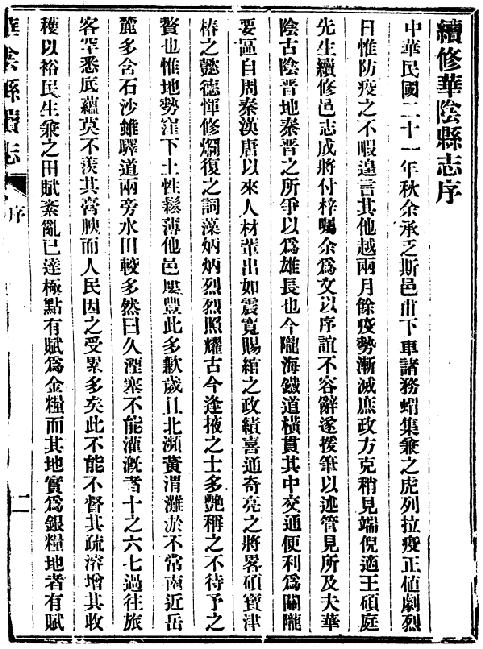 續修華陰縣志序
中華民國二十一年秋余承乏斯邑甫下車諸務蝟集兼之虎列拉疫正值劇烈
日惟防疫之不暇遑言其他越兩月餘疫勢漸滅庶政方克稍見端倪適王碩庭
先生續修邑志成將付梓囑余為文以序誼不容辭遂援筆以述管見所及夫華
陰古陰晉地秦晉之所爭以為雄長也今隴海鐵道橫貫其中交通便利為關隴
要區自周秦漢唐以來人材輩出如震寬賜綰之政績喜通奇亮之將畧碩寶津
椿之懿德惲修爛復之詞藻炳炳烈烈照耀古今逢掖之士多艷稱之不待予之
贅也惟地勢窪下土性鬆薄他邑屢豐此多歉歲且北瀕黃渭灘淤不常南近岳
麓多含石沙雖驛道兩旁水田較多然曰久湮塞不能灌漑者十之六七過往旅
客罕悉底蘊莫不羨其膏腴而人民因之受累多矣此不能不督其疏濬增其收
穫以裕民生兼之田賦紊亂已達極點有賦為金糧而其地實為銀糧地者有賦
華陰縣續志
序
二